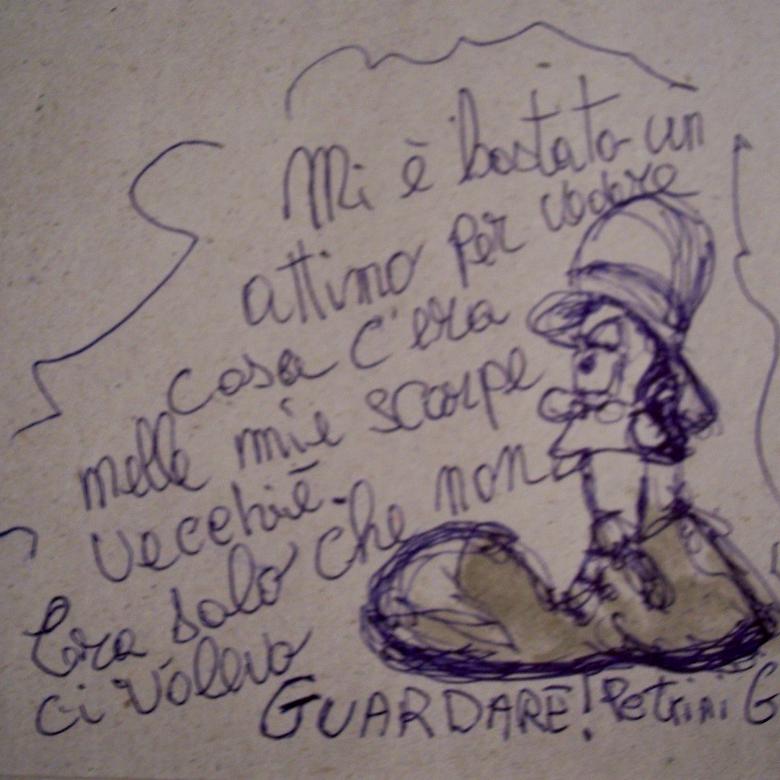 Mi è bastato un
attimo per vedere
cosa c'era
nelle mie scarpe
vecchie.
Era solo che non
ci volevo
GUARDARE! Petrini G